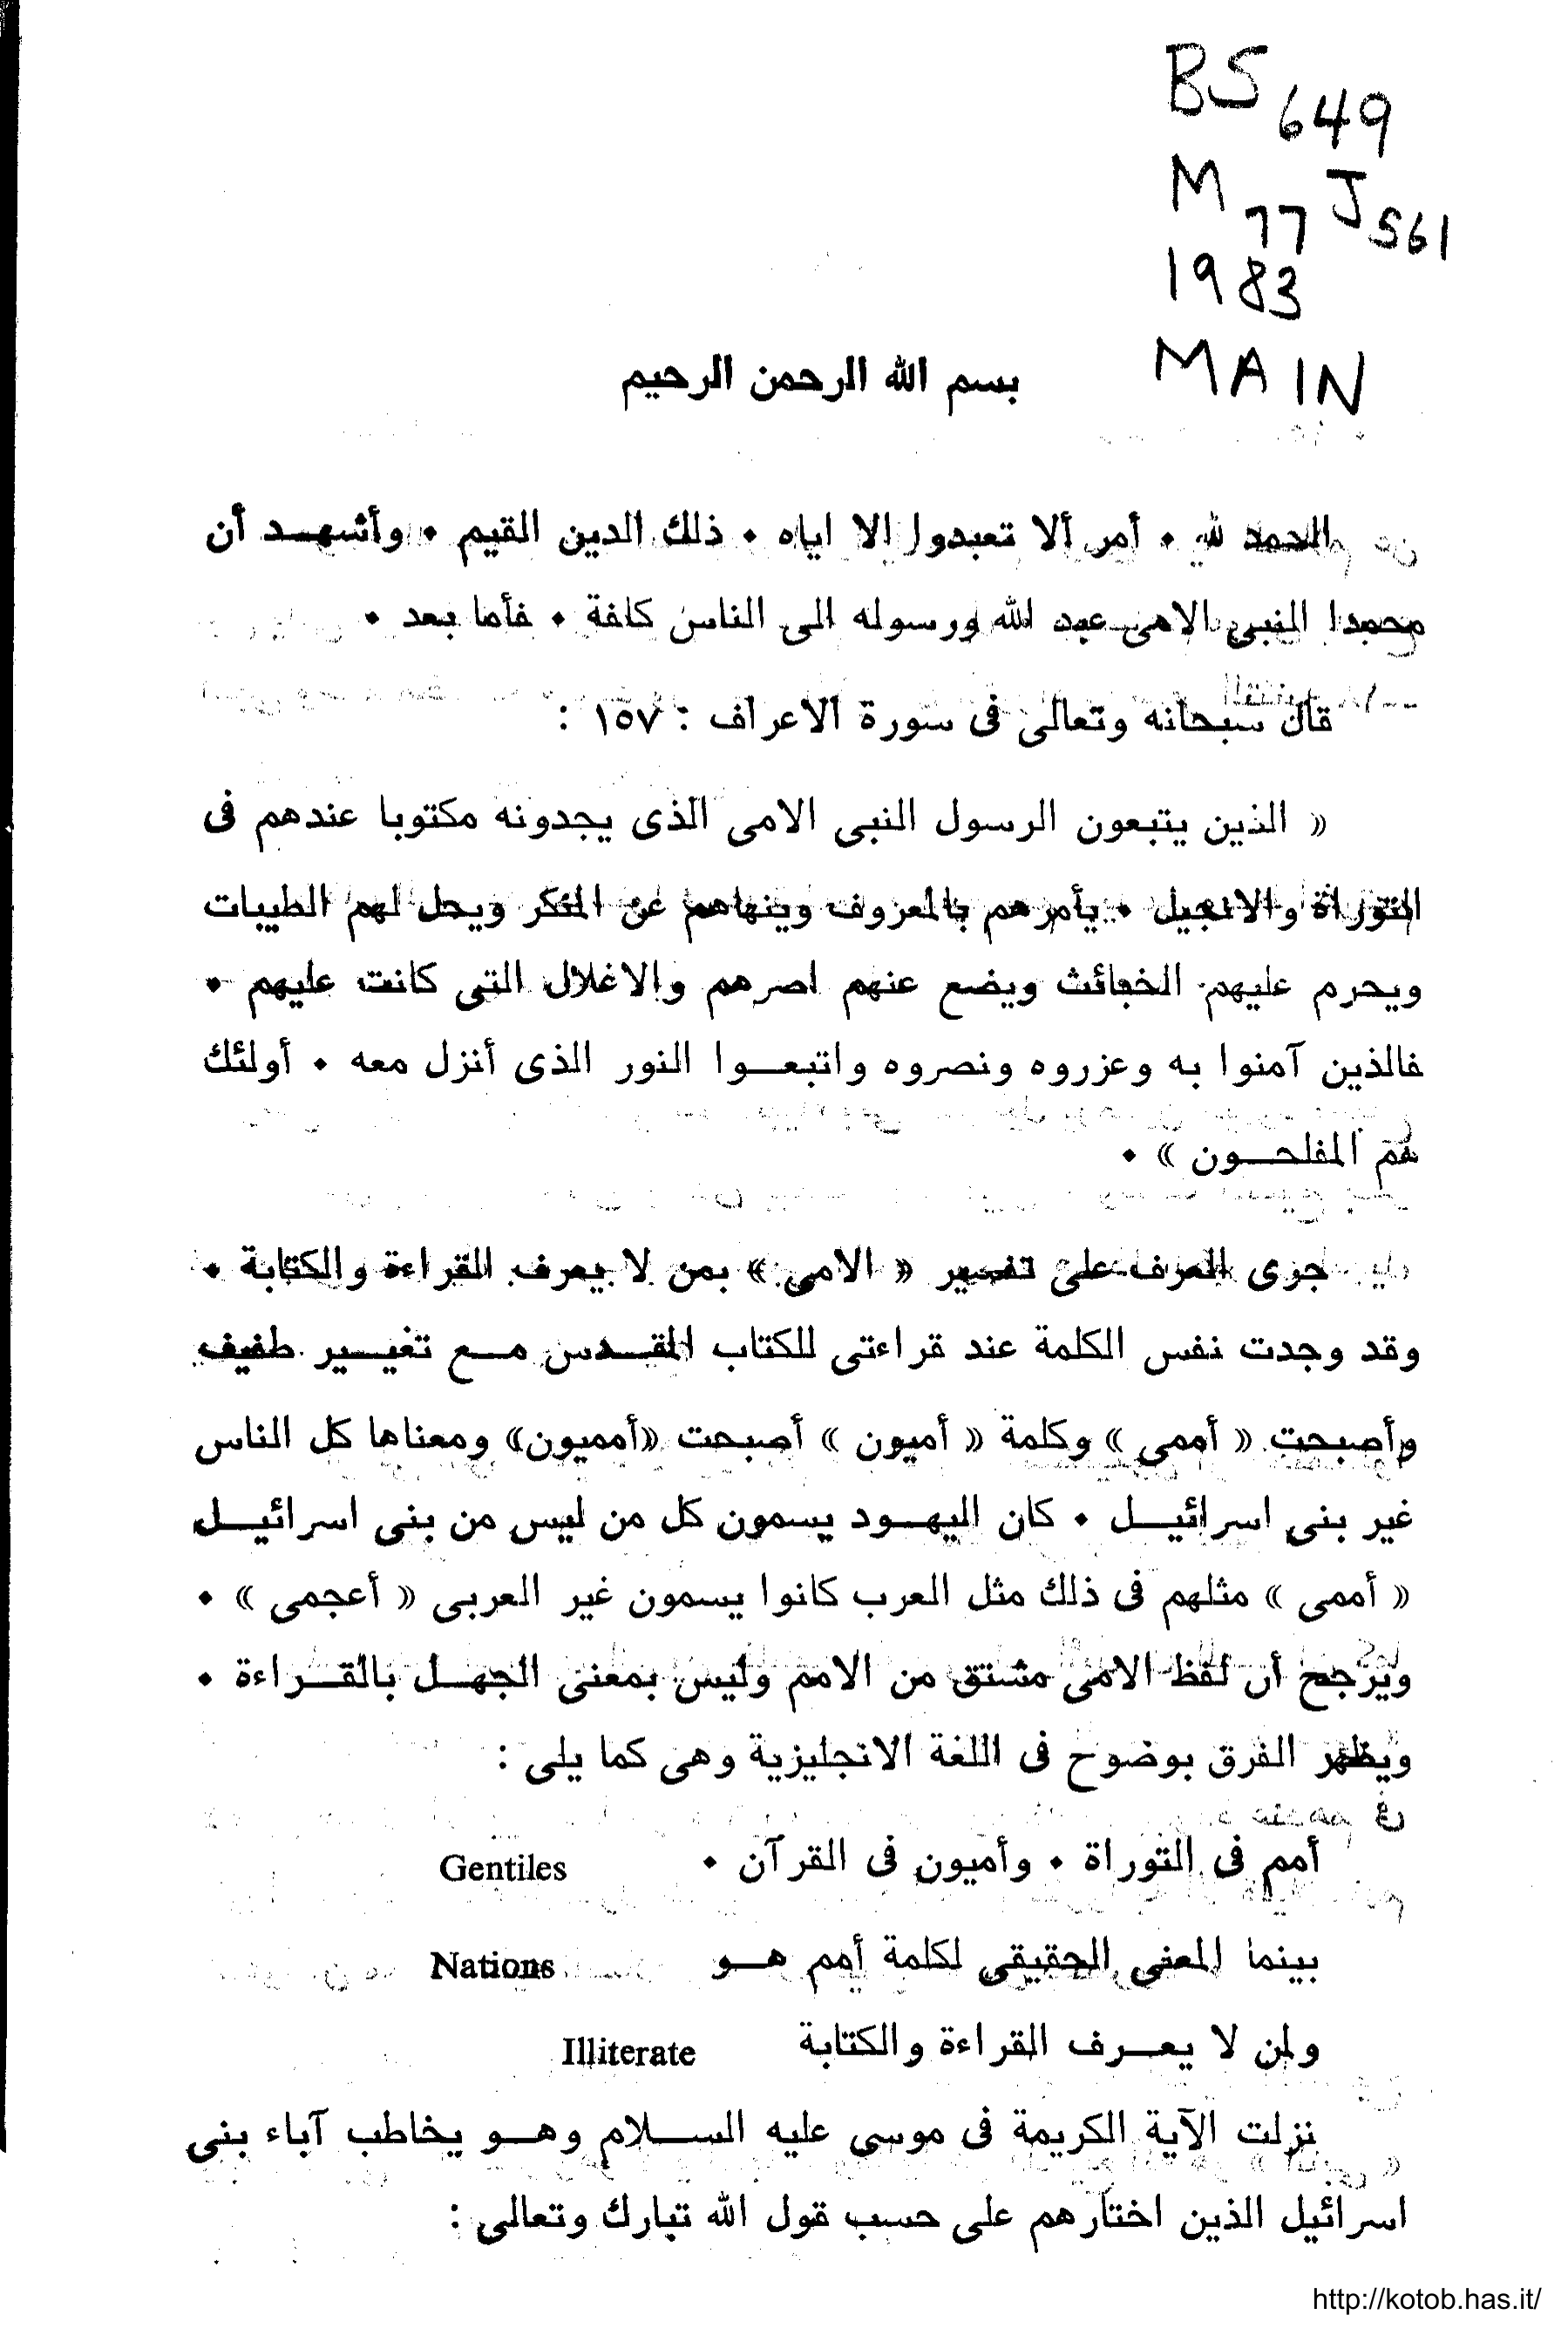 BS 649
M 77 J 561
1983
MAIN
بسم الله الرحمن الرحيم
الحمد لله ٠ أمر ألا تعبدوا الا اياه ٠ ذلك الدين القيم ٠ وأشهـد أن
محمدا النبى الامى عبد الله ورسوله الى الناس كافة ٠ فأما بعد ٠
قال سبحانه وتعالى فى سورة الاعراف : ١٥٧ :
« الذين يتبعون الرسول النبى الامى الذى يجدونه مكتوبا عندهم فى
التوراة والانجيل ٠ يأمرهم بالمعروف وينهاهم عن المنكر ويحل لهم الطيبات
ويحرم عليهم الخبائث ويضع عنهم اصرهم والاغلال التى كانت عليهم ٠
فالذين آمنوا به وعزروه ونصروه واتبعـوا النور الذى أنزل معه ٠ أولئك
هم المفلحـون » ٠
جرى العرف على تفسير « الامى » بمن لا يعرف القراءة والكتابة ٠
وقد وجدت نفس الكلمة عند قراءتى للكتاب المقـدس مـع تغيـير طفيف
وأصبحت « أممى » وكلمة « أميون » أصبحت «أمميون» ومعناها كل الناس
غير بنى اسرائيـل ٠ كان اليهـود يسمون كل من ليس من بنى اسرائيـل
« أممى » مثلهم فى ذلك مثل العرب كانوا يسمون غير العربى « أعجمى » ٠
ويرجح أن لفظ الامى مشتق من الامم وليس بمعنى الجهـل بالقـراءة ٠
ويظهر الفرق بوضوح فى اللغة الانجليزية وهى كما يلى :
أمم فى التوراة ٠ وأميون فى القرآن ٠ Gentiles
بينما المعنى الحقيقى لكلمة أمم هـو Nations
ولمن لا يعـرف القراءة والكتابة Illiterate
نزلت الآية الكريمة فى موسى عليه السـلام وهـو يخاطب آباء بنى
اسرائيل الذين اختارهم على حسب قول الله تبارك وتعالى :
http://kotob.has.it/